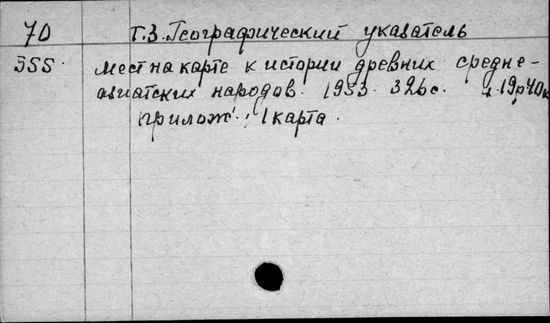 70 Т.3. Географический указатель
555. мест на карте к истории древних средне-
азиатских народов. 1953. 326 с. ц. 19р40к
прилож.: 1 карта.